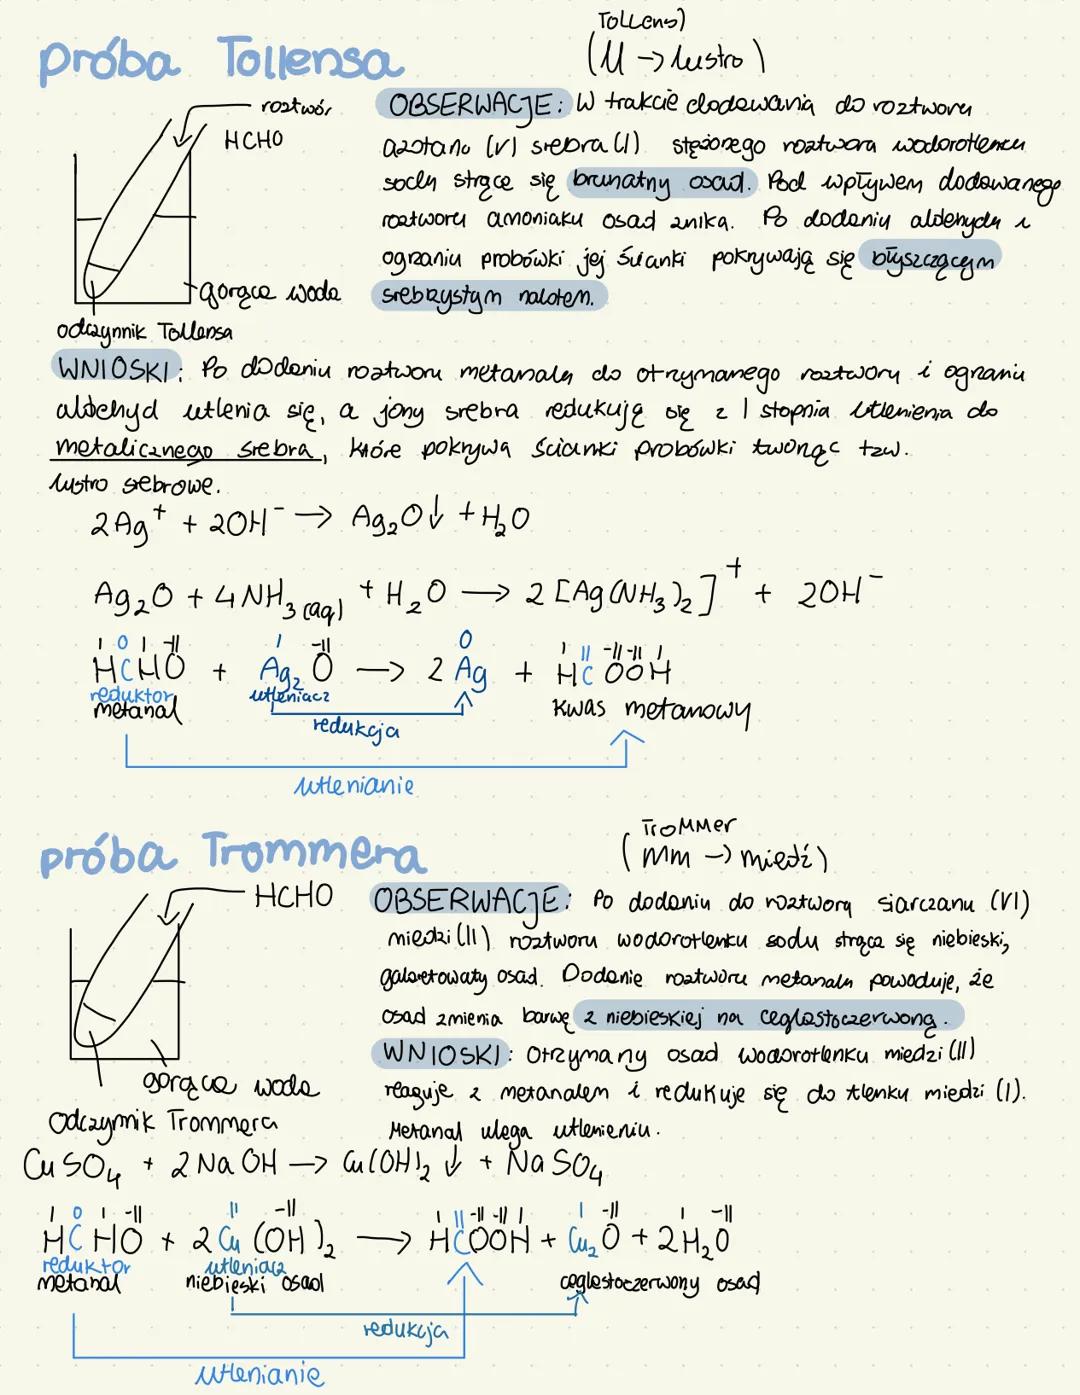 próba Tollensa
Tollens)
(ll → lustro)
roztwór
HCHO
gorąca woda
odczynnik Tollensa
OBSERWACJE: W trakcie dodawania do roztworu
azotanu (V) srebra (I) stężonego roztworu wodorotlenku
sodu strąca się brunatny osad. Pod wpływem dodawanego
roztworu amoniaku osad znika. Po dodaniu aldehydu i
ogrzaniu probówki jej ścianki pokrywają się błyszczącym
srebrzystym nalotem.
WNIOSKI: Po dodaniu roztworu metanalu do otrzymanego roztworu i ogrzaniu
aldehyd utlenia się, a jony srebra redukują się z I stopnia utlenienia do
metalicznego srebra, które pokrywa ścianki probówki tworząc tzw.
lustro srebrowe.
2Ag⁺ + 2OH⁻ → Ag₂O↓ + H₂O
Ag₂O + 4NH₃(aq) + H₂O → 2[Ag(NH₃)₂]⁺ + 2OH⁻
I 0 I -II I -II 0 I II -II -II I
HCHO + Ag₂O → 2Ag + HCOOH
reduktor utleniacz
metanal kwas metanowy
redukcja
utlenianie
próba Trommera
Trommer
(mm → miedź)
HCHO
gorąca woda
Odczynnik Trommera
OBSERWACJE: Po dodaniu do roztworu siarczanu (VI)
miedzi (II) roztworu wodorotlenku sodu strąca się niebieski,
galaretowaty osad. Dodanie roztworu metanalu powoduje, że
osad zmienia barwę z niebieskiej na ceglastoczerwoną.
WNIOSKI: Otrzymany osad wodorotlenku miedzi (II)
reaguje z metanalem i redukuje się do tlenku miedzi (I).
Metanal ulega utlenieniu.
CuSO₄ + 2NaOH → Cu(OH)₂↓ + NaSO₄
I 0 I -II II -II I II -II -II I I -II I -II
HCHO + 2Cu(OH)₂ → HCOOH + Cu₂O + 2H₂O
reduktor utleniacz
metanal niebieski osad ceglastoczerwony osad
redukcja
utlenianie